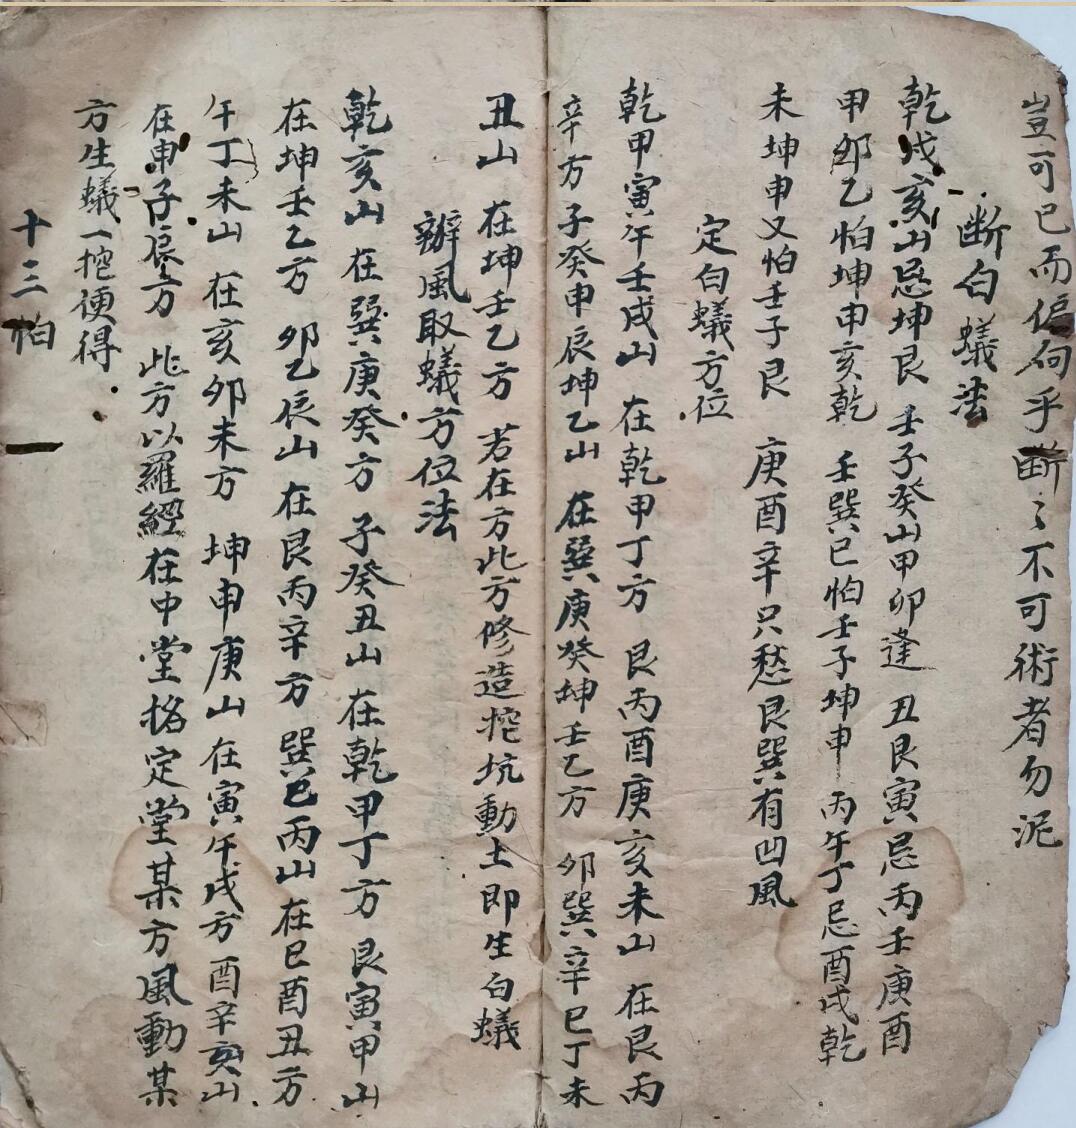 豈可已而偏何乎斷〻不可術者勿泥
断白蟻法
乾戌亥山忌坤艮 壬子癸山甲卯逢 丑艮寅忌丙壬庚酉
甲卯乙怕坤申亥乾 壬巽巳怕壬子坤申 丙午丁忌酉戌乾
未坤申又怕壬子艮 庚酉辛只愁艮巽有凹風
定白蟻方位
乾甲寅午壬戌山 在乾甲丁方 艮丙酉庚亥未山 在艮丙
辛方 子癸申辰坤乙山 在巽庚癸坤壬乙方 卯巽辛巳丁未
丑山 在坤壬乙方 若在方此方修造挖坑動土即生白蟻
辦風取蟻方位法
乾亥山 在巽庚癸方 子癸丑山 在乾甲丁方 艮寅甲山
在坤壬乙方 卯乙辰山 在艮丙辛方 巽巳丙山 在巳酉丑方
午丁未山 在亥卯未方 坤申庚山 在寅午戌方 酉辛亥山
在申子辰方 此方以羅經在中堂格定堂某方風動某
方生蟻一挖便得
十三怕